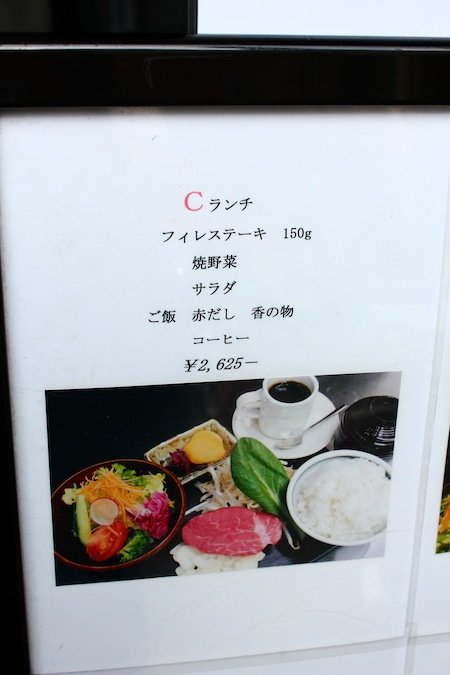 Cランチ
フィレステーキ 150g
焼野菜
サラダ
ご飯 赤だし 香の物
コーヒー
￥2,625－